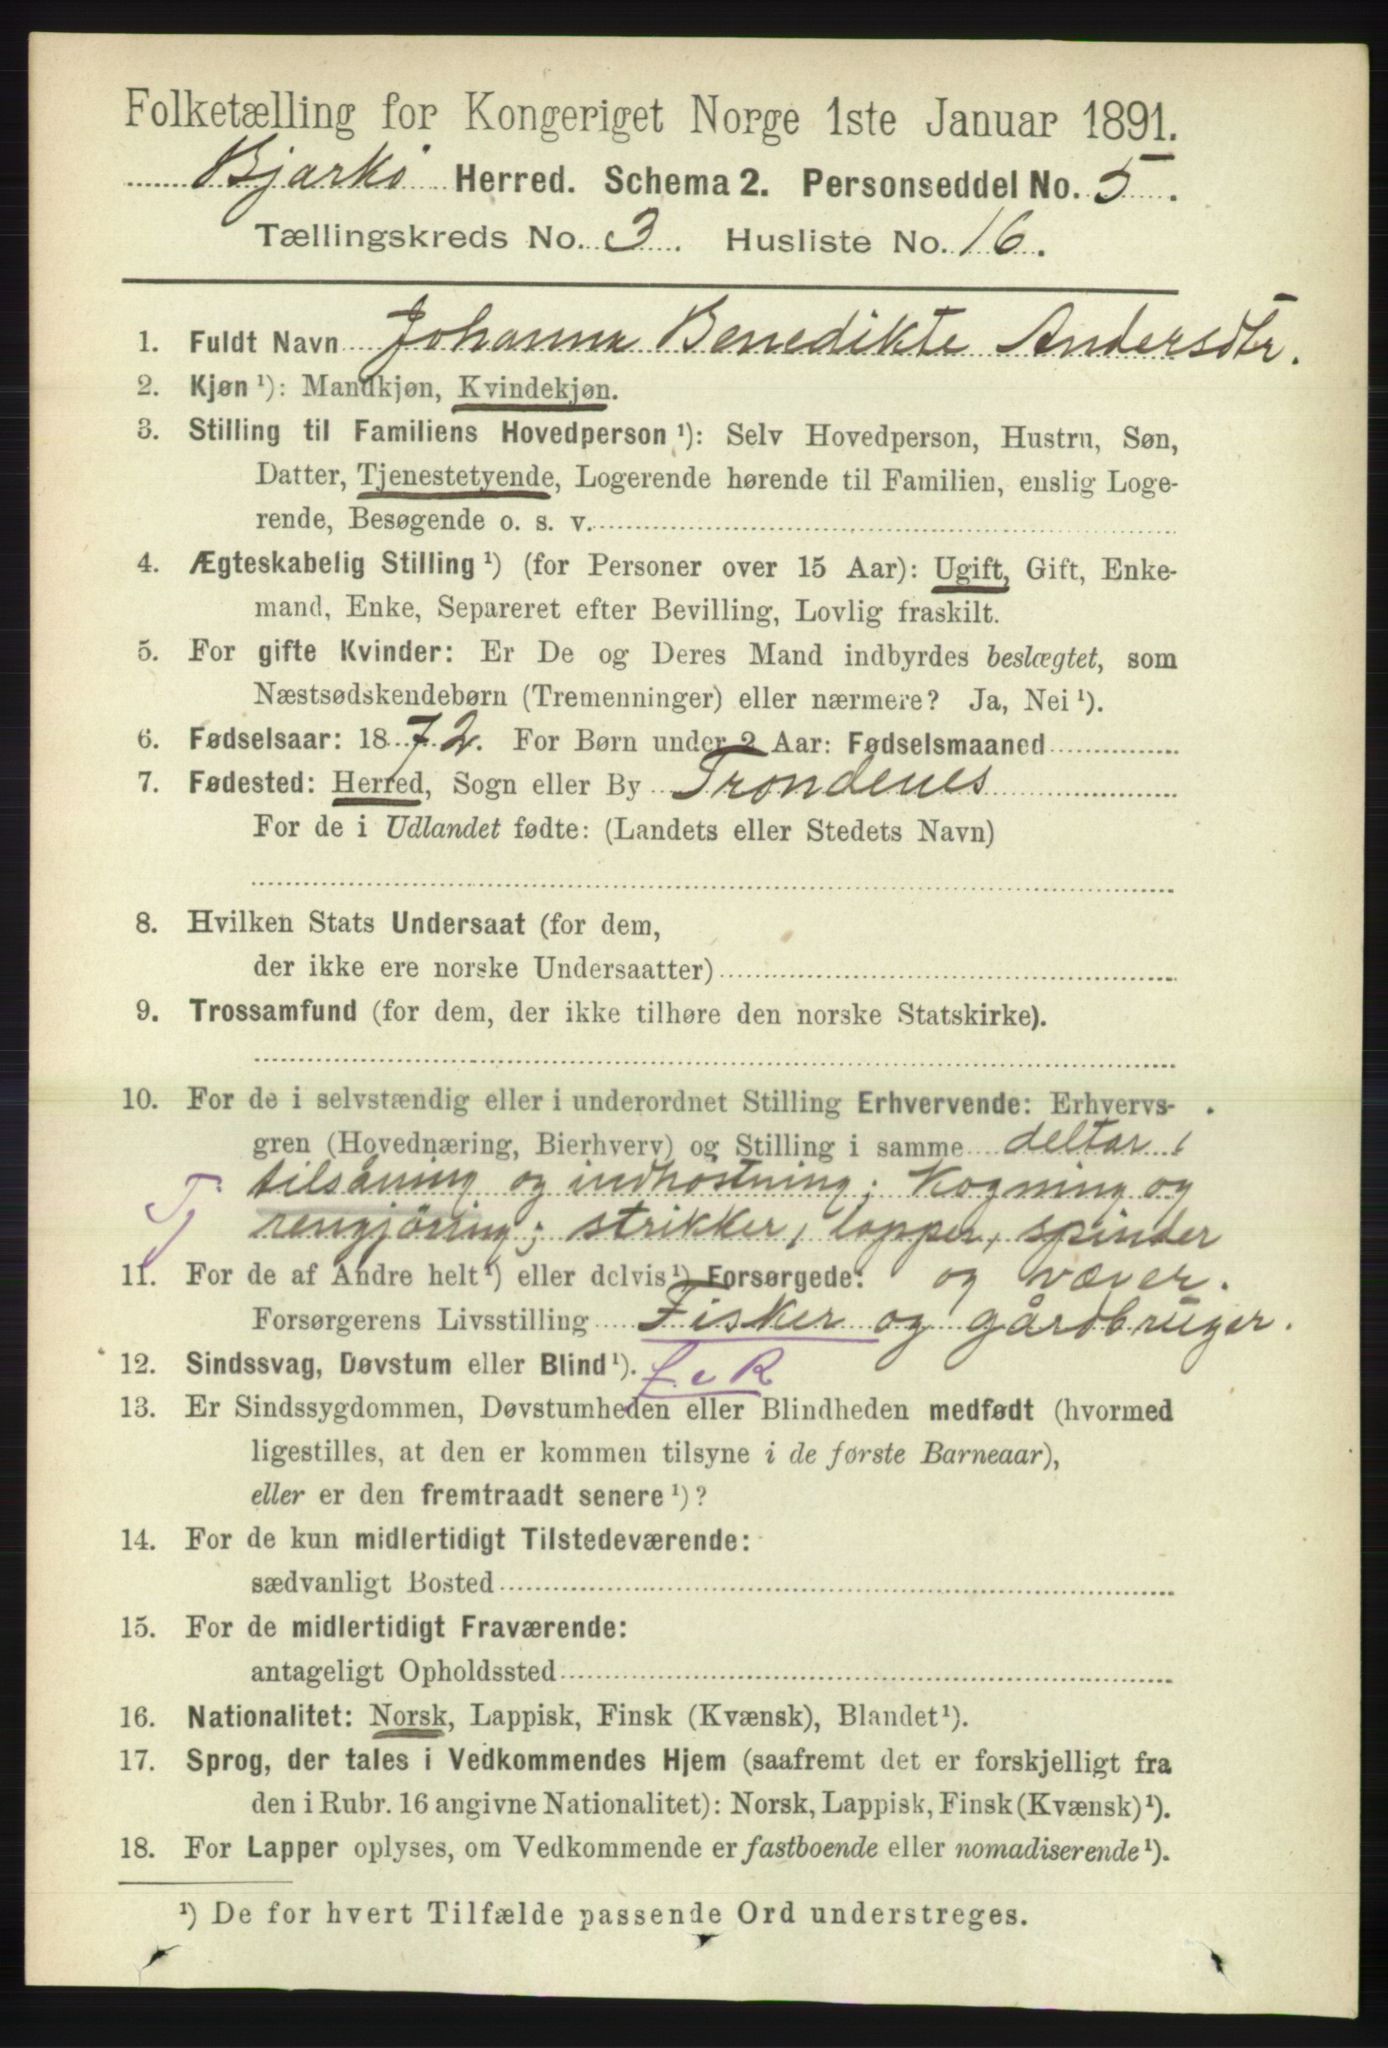 Folketælling for Kongeriget Norge 1ste Januar 1891.
Bjarkö Herred. Schema 2. Personseddel No. 5.
Tællingskreds No. 3. Husliste No. 16.
1. Fuldt Navn Johanna Benedikte Andersdtr.
2. Kjøn ¹): Mandkjøn, Kvindekjøn.
3. Stilling til Familiens Hovedperson ¹): Selv Hovedperson, Hustru, Søn,
Datter, Tjenestetyende, Logerende hørende til Familien, enslig Loge-
rende, Besøgende o. s. v.
4. Ægteskabelig Stilling ¹) (for Personer over 15 Aar): Ugift, Gift, Enke-
mand, Enke, Separeret efter Bevilling, Lovlig fraskilt.
5. For gifte Kvinder: Er De og Deres Mand indbyrdes beslægtet, som
Næstsødskendebørn (Tremenninger) eller nærmere? Ja, Nei ¹).
6. Fødselsaar: 1872. For Børn under 2 Aar: Fødselsmaaned
7. Fødested: Herred, Sogn eller By Trondenes
For de i Udlandet fødte: (Landets eller Stedets Navn)
8. Hvilken Stats Undersaat (for dem,
der ikke ere norske Undersaatter)
9. Trossamfund (for dem, der ikke tilhøre den norske Statskirke).
10. For de i selvstændig eller i underordnet Stilling Erhvervende: Erhvervs-
gren (Hovednæring, Bierhverv) og Stilling i samme deltar i
Tj tilsåning og indhöstning; Kogning og
rengjöring; strikker, lapper, spinder
11. For de af Andre helt ¹) eller delvis ¹) Forsørgede: og væver.
Forsørgerens Livsstilling Fisker og gårdbruger.
12. Sindssvag, Døvstum eller Blind ¹).
13. Er Sindssygdommen, Døvstumheden eller Blindheden medfødt (hvormed
ligestilles, at den er kommen tilsyne i de første Barneaar),
eller er den fremtraadt senere ¹)?
14. For de kun midlertidigt Tilstedeværende:
sædvanligt Bosted
15. For de midlertidigt Fraværende:
antageligt Opholdssted
16. Nationalitet: Norsk, Lappisk, Finsk (Kvænsk), Blandet ¹).
17. Sprog, der tales i Vedkommendes Hjem (saafremt det er forskjelligt fra
den i Rubr. 16 angivne Nationalitet): Norsk, Lappisk, Finsk (Kvænsk) ¹).
18. For Lapper oplyses, om Vedkommende er fastboende eller nomadiserende ¹).
¹) De for hvert Tilfælde passende Ord understreges.